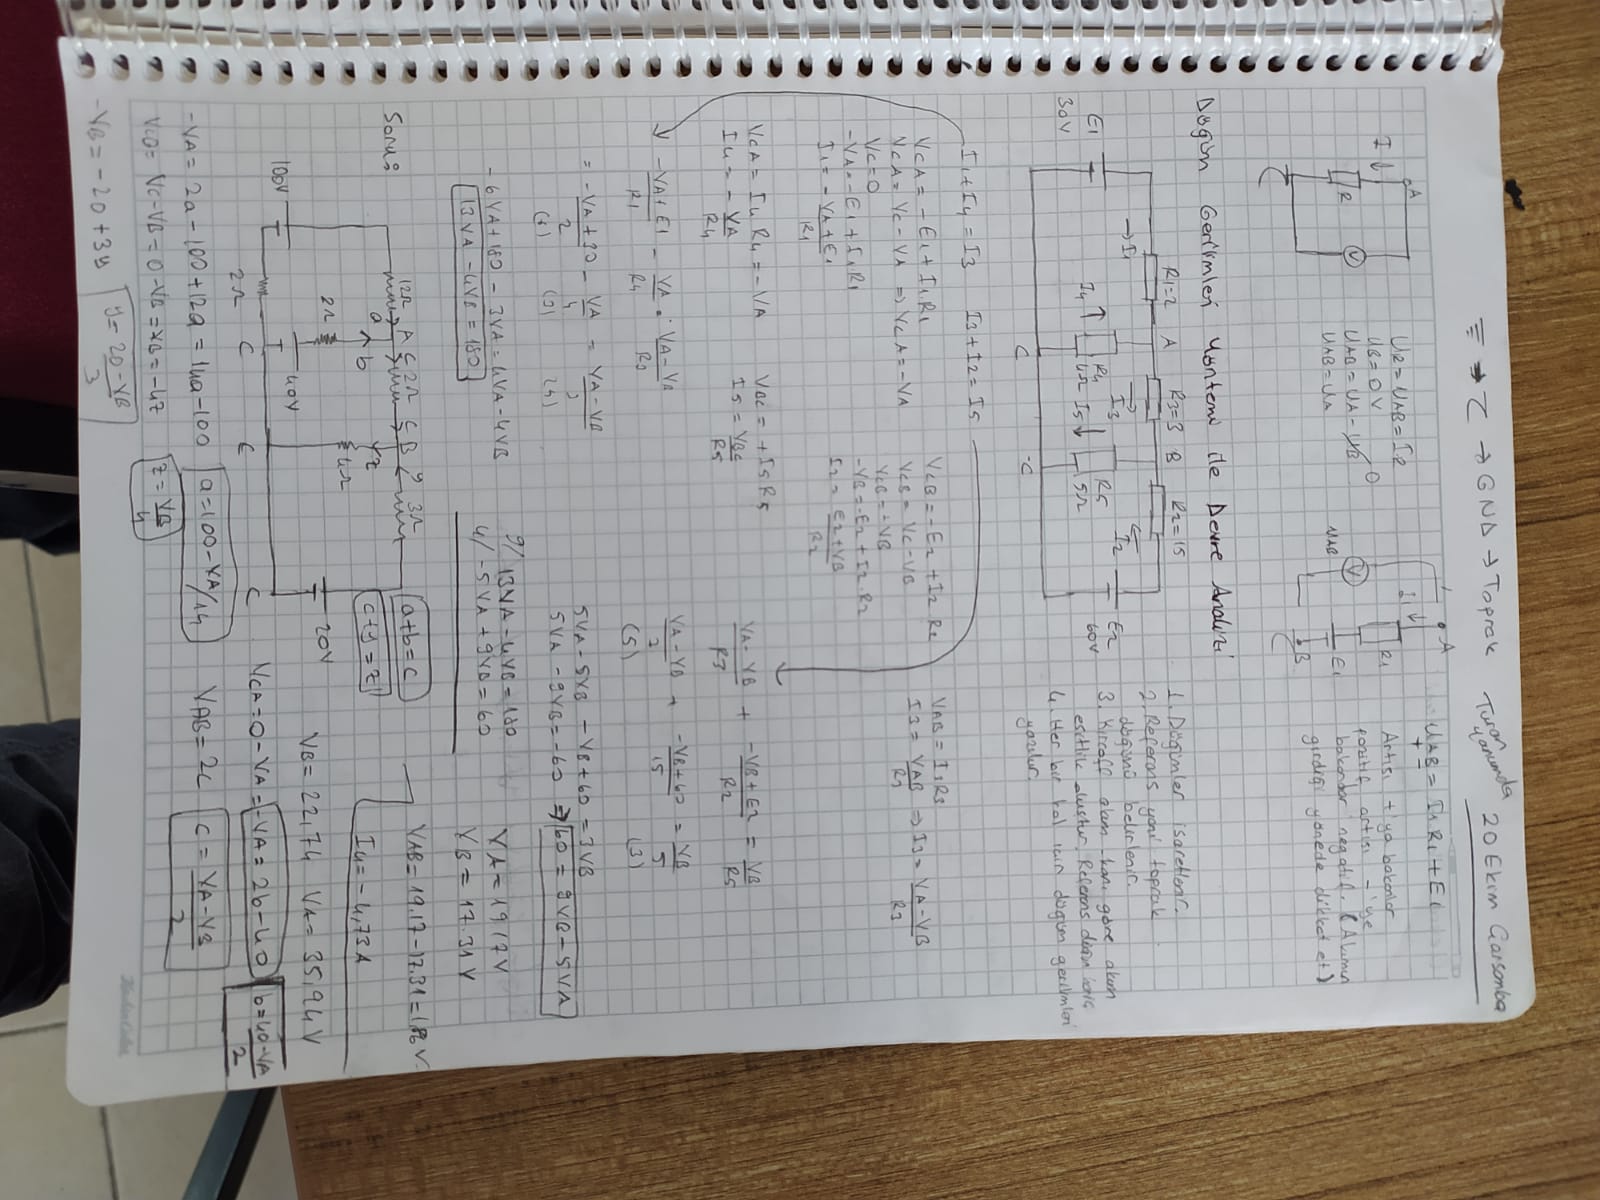 → GND → Toprak
Turan yanımda
20 Ekim Çarşamba
A
I
R
V
UR = UAB = I.R
UB = 0V
UAB = UA - UB 0
UAB = UA
A
I1
R1
V
UAB
E1
B
UAB = I1 R1 + E1
+ -
Artısı +'ya bakanlar
pozitif artısı -'ye
bakanlar negatif. (Akımın
girdiği yönede dikkat et)
Düğüm Gerilimleri Yöntemi ile Devre Analizi
R1=2 A R3=3 B R2=15
→I1 I3 I2
E1 30V
I4 R4 4Ω
I5 R5 5Ω
E2 60V
C C
1. Düğümler işaretlenir.
2. Referans yani toprak
düğümü belirlenir.
3. Kircoff akım kanı göre akım
eşitlik oluştur. Referans düğüm hariç
4. Her bir kol için düğüm gerilimleri
yazılır.
I1+I4 = I3 I3+I2 = I5
VCA = -E1 + I1R1
VCA = VC - VA ⇒ VCA = -VA
VC=0
-VA = -E1 + I1R1
I1 = -VA+E1 / R1
VCB = -E2 + I2 R2
VCB = VC - VB
VCB = -VB
-VB = -E2 + I2.R2
I2 = E2+VB / R2
VAB = I3R3
I3 = VAB / R3 ⇒ I3 = VA-VB / R3
VCA = I4 R4 = -VA
I4 = - VA / R4
VBC = +I5R5
I5 = VBC / R5
VA-VB / R3 + -VB+E2 / R2 = VB / R5
-VA+E1 / R1 - VA / R4 = VA-VB / R3
VA-VB / 3 + -VB+60 / 15 = VB / 5
(5) (3)
= -VA+30 / 2 - VA / 4 = VA-VB / 3
(6) (3) (4)
5VA-5VB - VB+60 = 3VB
5VA - 9VB = -60 ⇒ 60 = 9VB - 5VA
-6VA+180 - 3VA = 4VA-4VB
13VA - 4VB = 180
9/ 13VA - 4VB = 180
4/ -5VA + 9VB = 60
VA = 19,17V
VB = 17.31V
VAB = 19.17-17.31 = 1,86 V
I4 = -4,73 A
Soru:
12Ω A C 2Ω C B y 3Ω
a b z
2Ω 4Ω
100V 40V 20V
2Ω C C C
a+b=c
c+y=z
VB = 22,74 VA = 35,94V
VCA = 0-VA = -VA = 2b-40 b = 40-VA / 2
-VA = 2a-100+12a = 14a-100 a = 100-VA/14
VAB = 2c c = VA-VB / 2
VCB = VC-VB = 0-VB = VB = -4z z = VB / 4
-VB = -20+3y y = 20-VB / 3